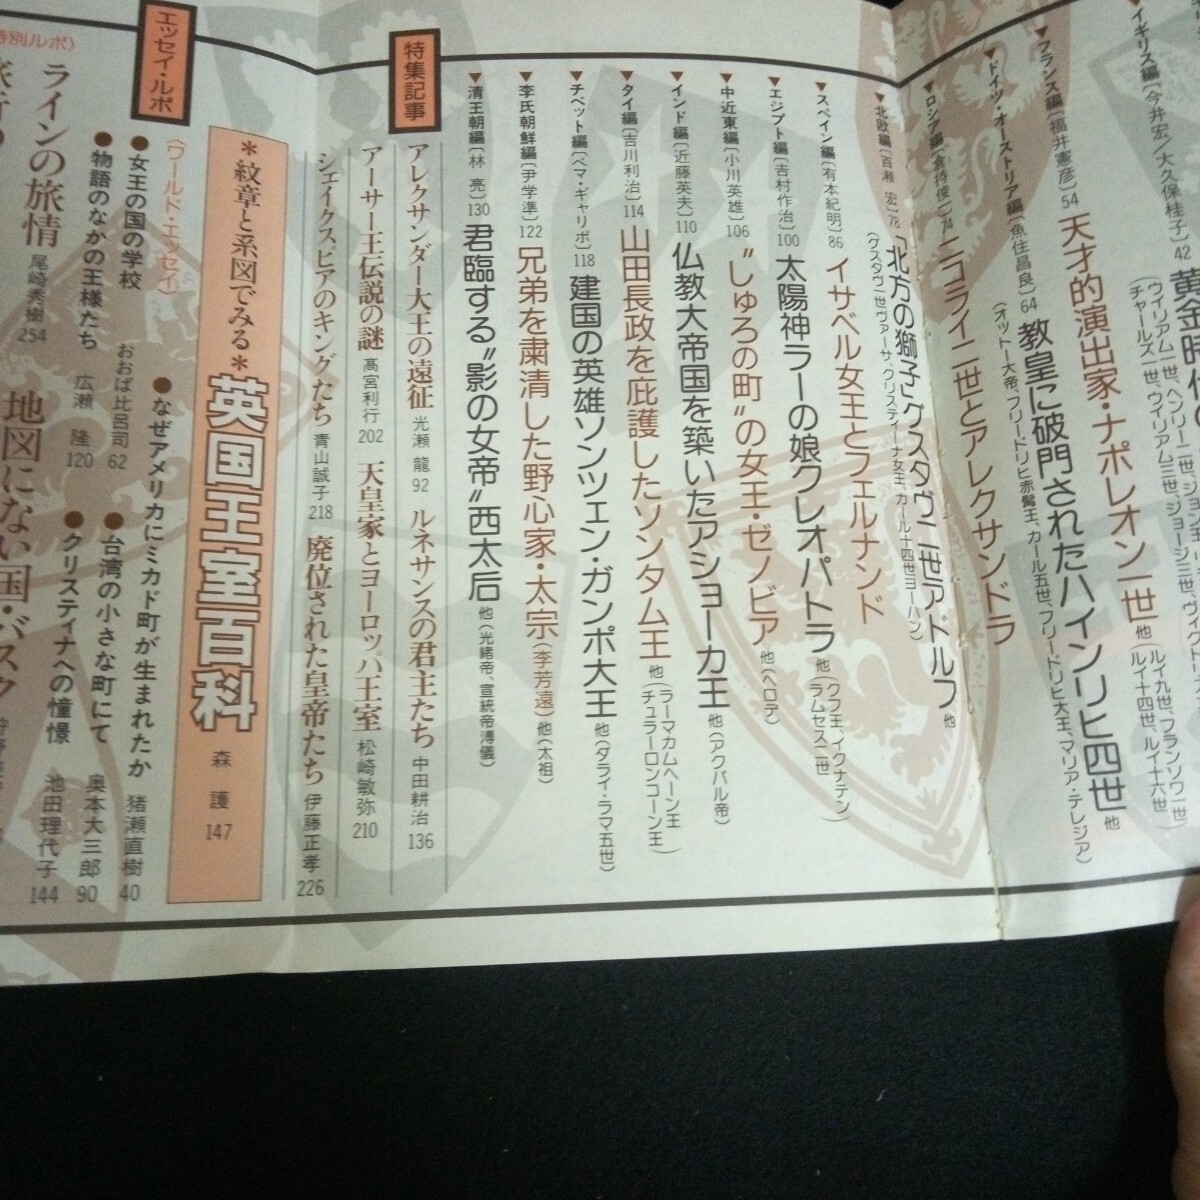 ▼イギリス編〔今井宏/大久保桂子〕42
黄金時代
ウイリアム一世、ヘンリー二世、ジョン王
チャールズ一世、ウイリアム三世、ジョージ三世、ヴィクト
▼フランス編〔福井憲彦〕54
天才的演出家・ナポレオン一世 他
ルイ九世、フランソワ一世
ルイ十四世、ルイ十六世
▼ドイツ・オーストリア編〔魚住昌良〕64
教皇に破門されたハインリヒ四世 他
(オットー大帝、フリードリヒ赤髯王、カール五世、フリードリヒ大王、マリア・テレジア)
▼ロシア編〔倉持俊一〕74
ニコライ二世とアレクサンドラ
▼北欧編〔百瀬 宏〕78
「北方の獅子」グスタヴ二世アドルフ 他
(グスタヴ一世ヴァーサ、クリスティーナ女王、カール十四世ヨーハン)
▼スペイン編〔有本紀明〕86
イサベル女王とフェルナンド
▼エジプト編〔吉村作治〕100
太陽神ラーの娘クレオパトラ 他
(クフ王、イクナテン
ラムセス二世)
▼中近東編〔小川英雄〕106
〝しゅろの町〟の女王・ゼノビア 他(ヘロデ)
▼インド編〔近藤英夫〕110
仏教大帝国を築いたアショーカ王 他(アクバル帝)
▼タイ編〔吉川利治〕114
山田長政を庇護したソンタム王 他
(ラーマカムヘーン王
チュラーロンコーン王)
▼チベット編〔ペマ・ギャリポ〕118
建国の英雄ソンツェン・ガンポ大王 他(ダライ・ラマ五世)
▼李氏朝鮮編〔尹学準〕122
兄弟を粛清した野心家・太宗(李芳遠) 他(太祖)
▼清王朝編〔林 亮〕130
君臨する〝影の女帝〟西太后 他(光緒帝、宣統帝溥儀)
特集記事
アレクサンダー大王の遠征 光瀬 龍 92
ルネサンスの君主たち 中田耕治 136
アーサー王伝説の謎 高宮利行 202
天皇家とヨーロッパ王室 松崎敏弥 210
シェイクスピアのキングたち 青山誠子 218
廃位された皇帝たち 伊藤正孝 226
*紋章と系図でみる*英国王室百科 森 護 147
エッセイ・ルポ
〈ワールド・エッセイ〉
●なぜアメリカにミカド町が生まれたか 猪瀬直樹 40
●女王の国の学校 おおば比呂司 62
●台湾の小さな町にて 奥本大三郎 90
●物語のなかの王様たち 広瀬 隆 120
●クリスティナへの憧憬 池田理代子 144
特別ルポ〉
ラインの旅情 尾崎秀樹 254
地図にない国・バスク